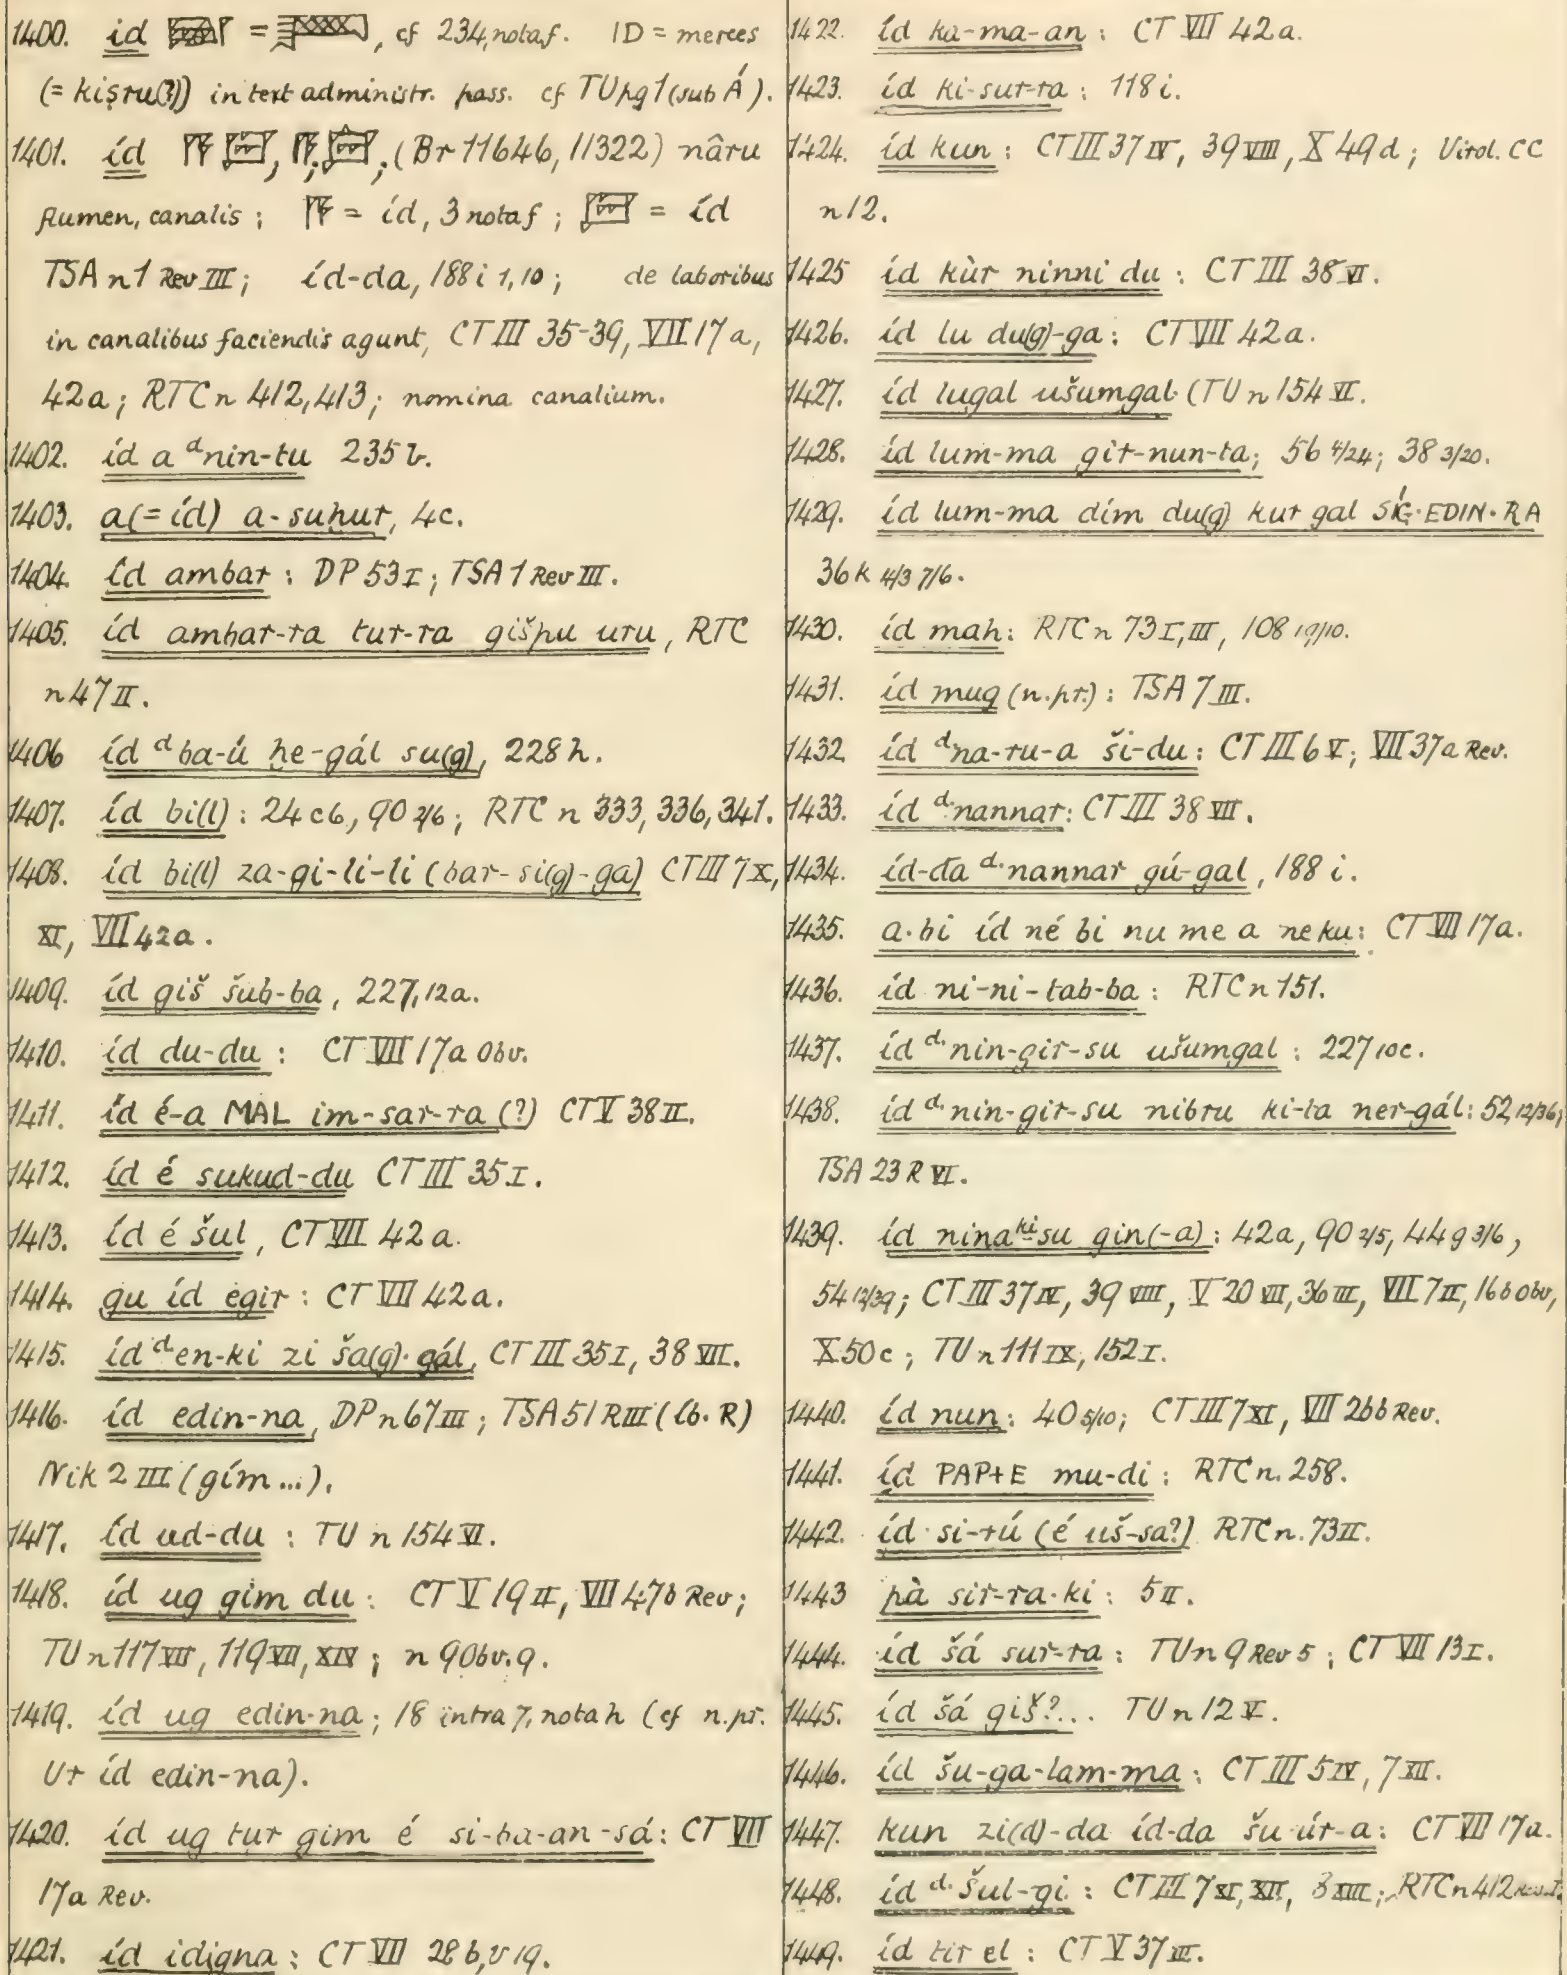 1400. id = , cf 234, nota f. ID = merces
(= kiṣru(?)) in text administr. pass. cf TU pg 1 (sub Á).
1401. íd , , (Br 11646, 11322) nâru
flumen, canalis; = íd, 3 nota f; = íd
TSA n 1 Rev III; íd-da, 188 i 1, 10; de laboribus
in canalibus faciendis agunt, CT III 35-39, VII 17 a,
42 a; RTC n 412, 413; nomina canalium.
1402. íd a ᵈnin-tu 235 b.
1403. a (= íd) a-suḫur, 4c.
1404. íd ambar : DP 53 I; TSA 1 Rev III.
1405. íd ambar-ra tur-ra gišpu uru, RTC
n 47 II.
1406 íd ᵈba-ú ḫe-gál su(g), 228 h.
1407. íd bi(l) : 24 c6, 90 2/6; RTC n 333, 336, 341.
1408. íd bi(l) za-gi-li-li (bar-si(g)-ga) CT III 7 X,
XI, VII 42 a.
1409. íd giš šub-ba, 227, 12a.
1410. íd du-du : CT VII 17a Obv.
1411. íd é-a MAL im-sar-ra (?) CT V 38 II.
1412. íd é sukud-du CT III 35 I.
1413. íd é šul, CT VII 42 a.
1414. gu íd egir : CT VII 42 a.
1415. íd ᵈen-ki zi ša(g)-gál, CT III 35 I, 38 VII.
1416. íd edin-na, DP n 67 III; TSA 51 R III (lb. R)
Nik 2 III (gím ...).
1417. íd ud-du : TU n 154 VI.
1418. íd ug gim du : CT V 19 II, VII 47b Rev;
TU n 117 VIII, 119 VII, XIV; n 9 Obv. 9.
1419. íd ug edin-na; 18 intra 7, nota h (cf n. pr.
Ur íd edin-na).
1420. íd ug tur gim é si-ba-an-sá: CT VII
17a Rev.
1421. íd idigna : CT VII 28 b, v 19.
1422. íd ka-ma-an : CT VII 42 a.
1423. íd ki-sur-ra : 118 i.
1424. íd kun : CT III 37 IV, 39 VIII, X 49 d; Virol. CC
n 12.
1425 íd kùr ninni du : CT III 38 VI.
1426. íd lu du(g)-ga : CT VII 42 a.
1427. íd lugal ušumgal (TU n 154 VI.
1428. íd lum-ma gir-nun-ta; 56 4/24; 38 3/20.
1429. íd lum-ma dím du(g) kur gal SÍG·EDIN·RA
36 k 4/3 7/6.
1430. íd maḫ : RTC n 73 I, III, 108 19/10.
1431. íd mug (n. pr.) : TSA 7 III.
1432. íd ᵈna-ru-a ši-du : CT III 6 V; VII 37 a Rev.
1433. íd ᵈnannar : CT III 38 VII.
1434. íd-da ᵈ·nannar gú-gal, 188 i.
1435. a·bi íd né bi nu me a ne ku : CT VII 17 a.
1436. íd ni-ni-tab-ba : RTC n 151.
1437. íd ᵈ·nin-gir-su ušumgal : 227 10c.
1438. íd ᵈ·nin-gir-su nibru ki-ta ner-gál: 52, 12/36;
TSA 23 R VI.
1439. íd ninaᵏⁱ-su gin(-a) : 42 a, 90 2/5, 44 g 3/6,
54 12/39; CT III 37 IV, 39 VIII, V 20 VII, 36 III, VII 7 II, 16 b Obv,
X 50 c; TU n 111 IX, 152 I.
1440. íd nun : 40 5/10; CT III 7 XI, VII 26 b Rev.
1441. íd PAP+E mu-di : RTC n. 258.
1442. íd si-rú (é uš-sa?) RTC n. 73 II.
1443 pà sir-ra-ki : 5 II.
1444. íd šá sur-ra : TU n 9 Rev 5; CT VII 13 I.
1445. íd šá giš?... TU n 12 V.
1446. íd šu-ga-lam-ma : CT III 5 IV, 7 XII.
1447. kun zi(d)-da íd-da šu-úr-a : CT VII 17a.
1448. íd ᵈ·šul-gi : CT III 7 XI, XII, 8 XIII; RTC n 412
1449. íd tir el : CT V 37 III.